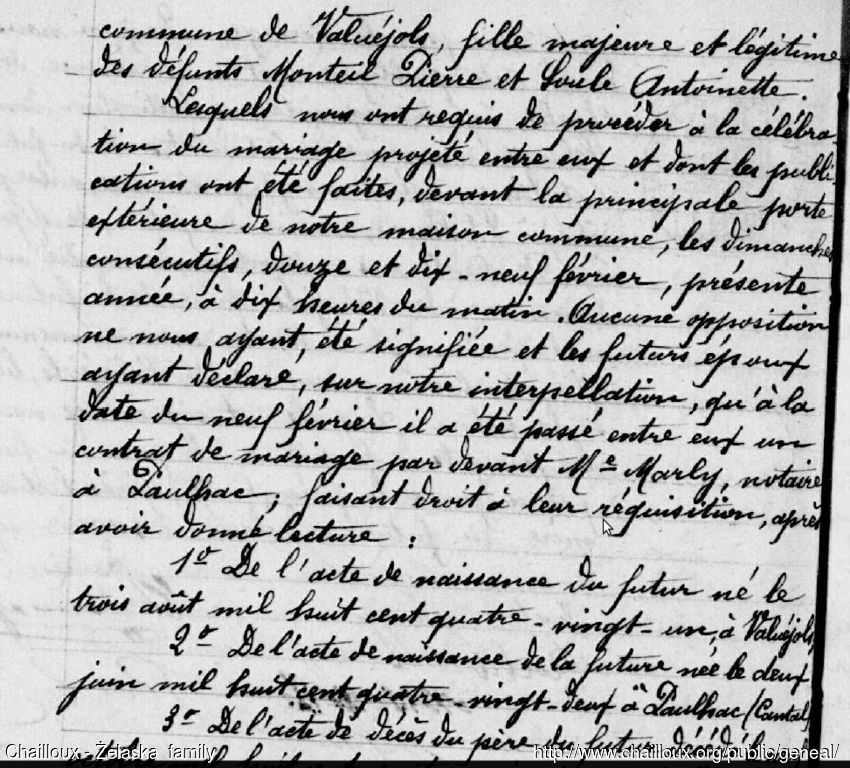 commune de Valuéjols, fille majeure et légitime
des défunts Monteil Pierre et Soule Antoinette.
Lesquels nous ont requis de procéder à la célébra-
tion du mariage projeté entre eux et dont les publi-
cations ont été faites, devant la principale porte
extérieure de notre maison commune, les dimanches
consécutifs, douze et dix-neuf février, présente
année, à dix heures du matin. Aucune opposition
ne nous ayant, été signifiée et les futurs époux
ayant déclaré, sur notre interpellation, qu'à la
date du neuf février il a été passé entre eux un
contrat de mariage par devant Me Marly, notaire
à Paulhac; faisant droit à leur réquisition, après
avoir donné lecture :
1o De l'acte de naissance du futur né le
trois août mil huit cent quatre-vingt-un, à Valuéjols,
2o De l'acte de naissance de la future née le deux
juin mil huit cent quatre-vingt-deux à Paulhac (Cantal)
3o De l'acte de décès du père du futur décédé
Chailloux - Żelaska family
http://www.chailloux.org/public/geneal/